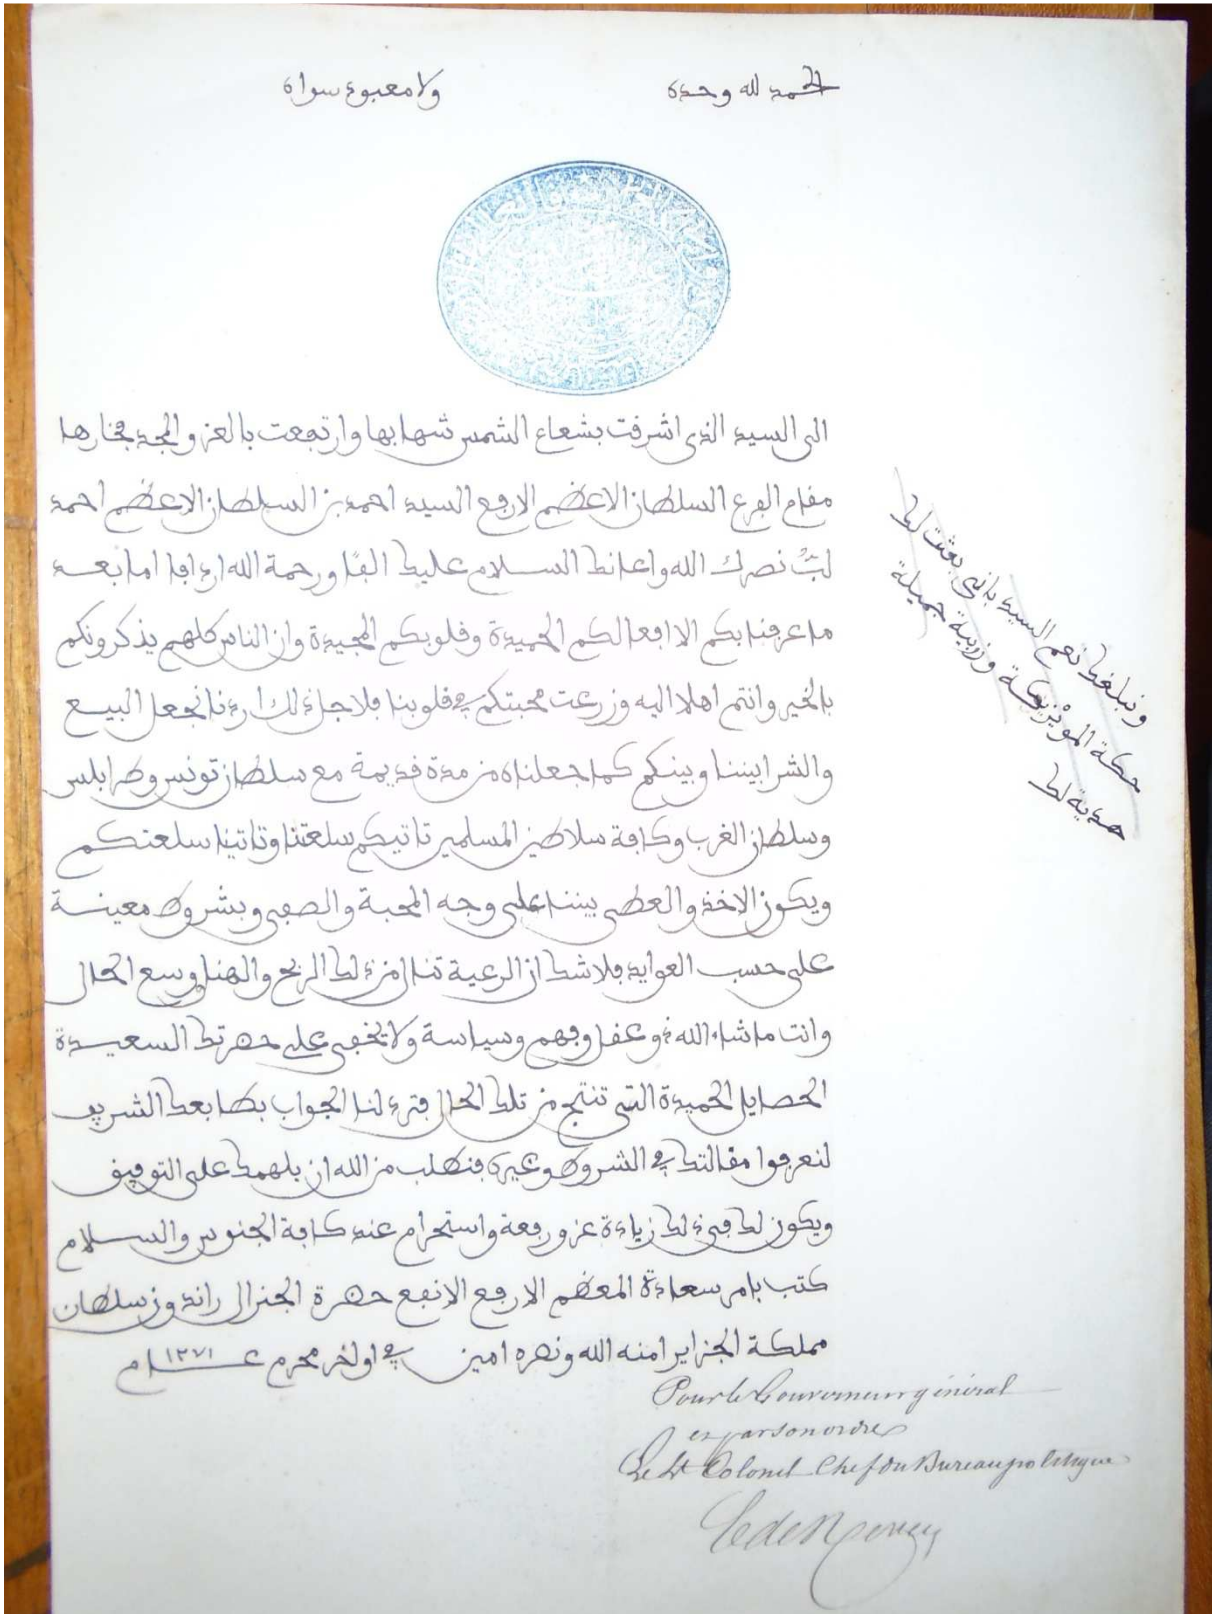 الحمد لله وحده ولا معبود سواه
الى السيد الذى اشرقت بشعاع الشمس شهابها وارتفعت بالعز والمجد فخارها
مقام الفرع السلطان الاعظم الارفع السيد احمد بن السلطان الاعظم احمد
لبُّ نصرك الله واعانك السلام عليك الفًا ورحمة الله اردافا اما بعد
ما عرفنا بكم الا افعالكم الحميدة وقلوبكم المجيدة وان الناس كلهم يذكرونكم
بالخير وانتم اهلا اليه وزرعت محبتكم في قلوبنا فلاجل ذلك اردنا نجعل البيع
والشرا بيننا وبينكم كما جعلناه من مدة قديمة مع سلطان تونس وطرابلس
وسلطان الغرب وكافة سلاطين المسلمين تاتيكم سلعتنا وتاتينا سلعتكم
ويكون الاخذ والعطى بيننا على وجه المحبة والصفى وبشروط معينة
على حسب العوايد فلا شك ان الرعية تنال من ذلك الربح والهنا وسع الحال
وانت ما شاء الله ذو عقل وفهم وسياسة ولا يخفى على حضرتك السعيدة
الحصايل الحميدة التى تنتج من تلك الحال فترد لنا الجواب بطابعك الشريف
لنعرفوا مقالتك في الشروط وغيره فنطلب من الله ان يلهمك على التوفيق
ويكون لك في ذلك زيادة عز ورفعة واستحرام عند كافة الجنوس والسلام
كتب بامر سعادة المعظم الارفع الانفع حضرة الجنرال راندون سلطان
مملكة الجزاير امنه الله ونصره امين في اواخر محرم عام ١٢٧١
ونبلغك نعم السيد بانى بعثت لك
حكة الموزيكة وزربية جميلة
هدية لك
Pour le Gouverneur général
et par son ordre
Le Lt Colonel Chef du Bureau politique